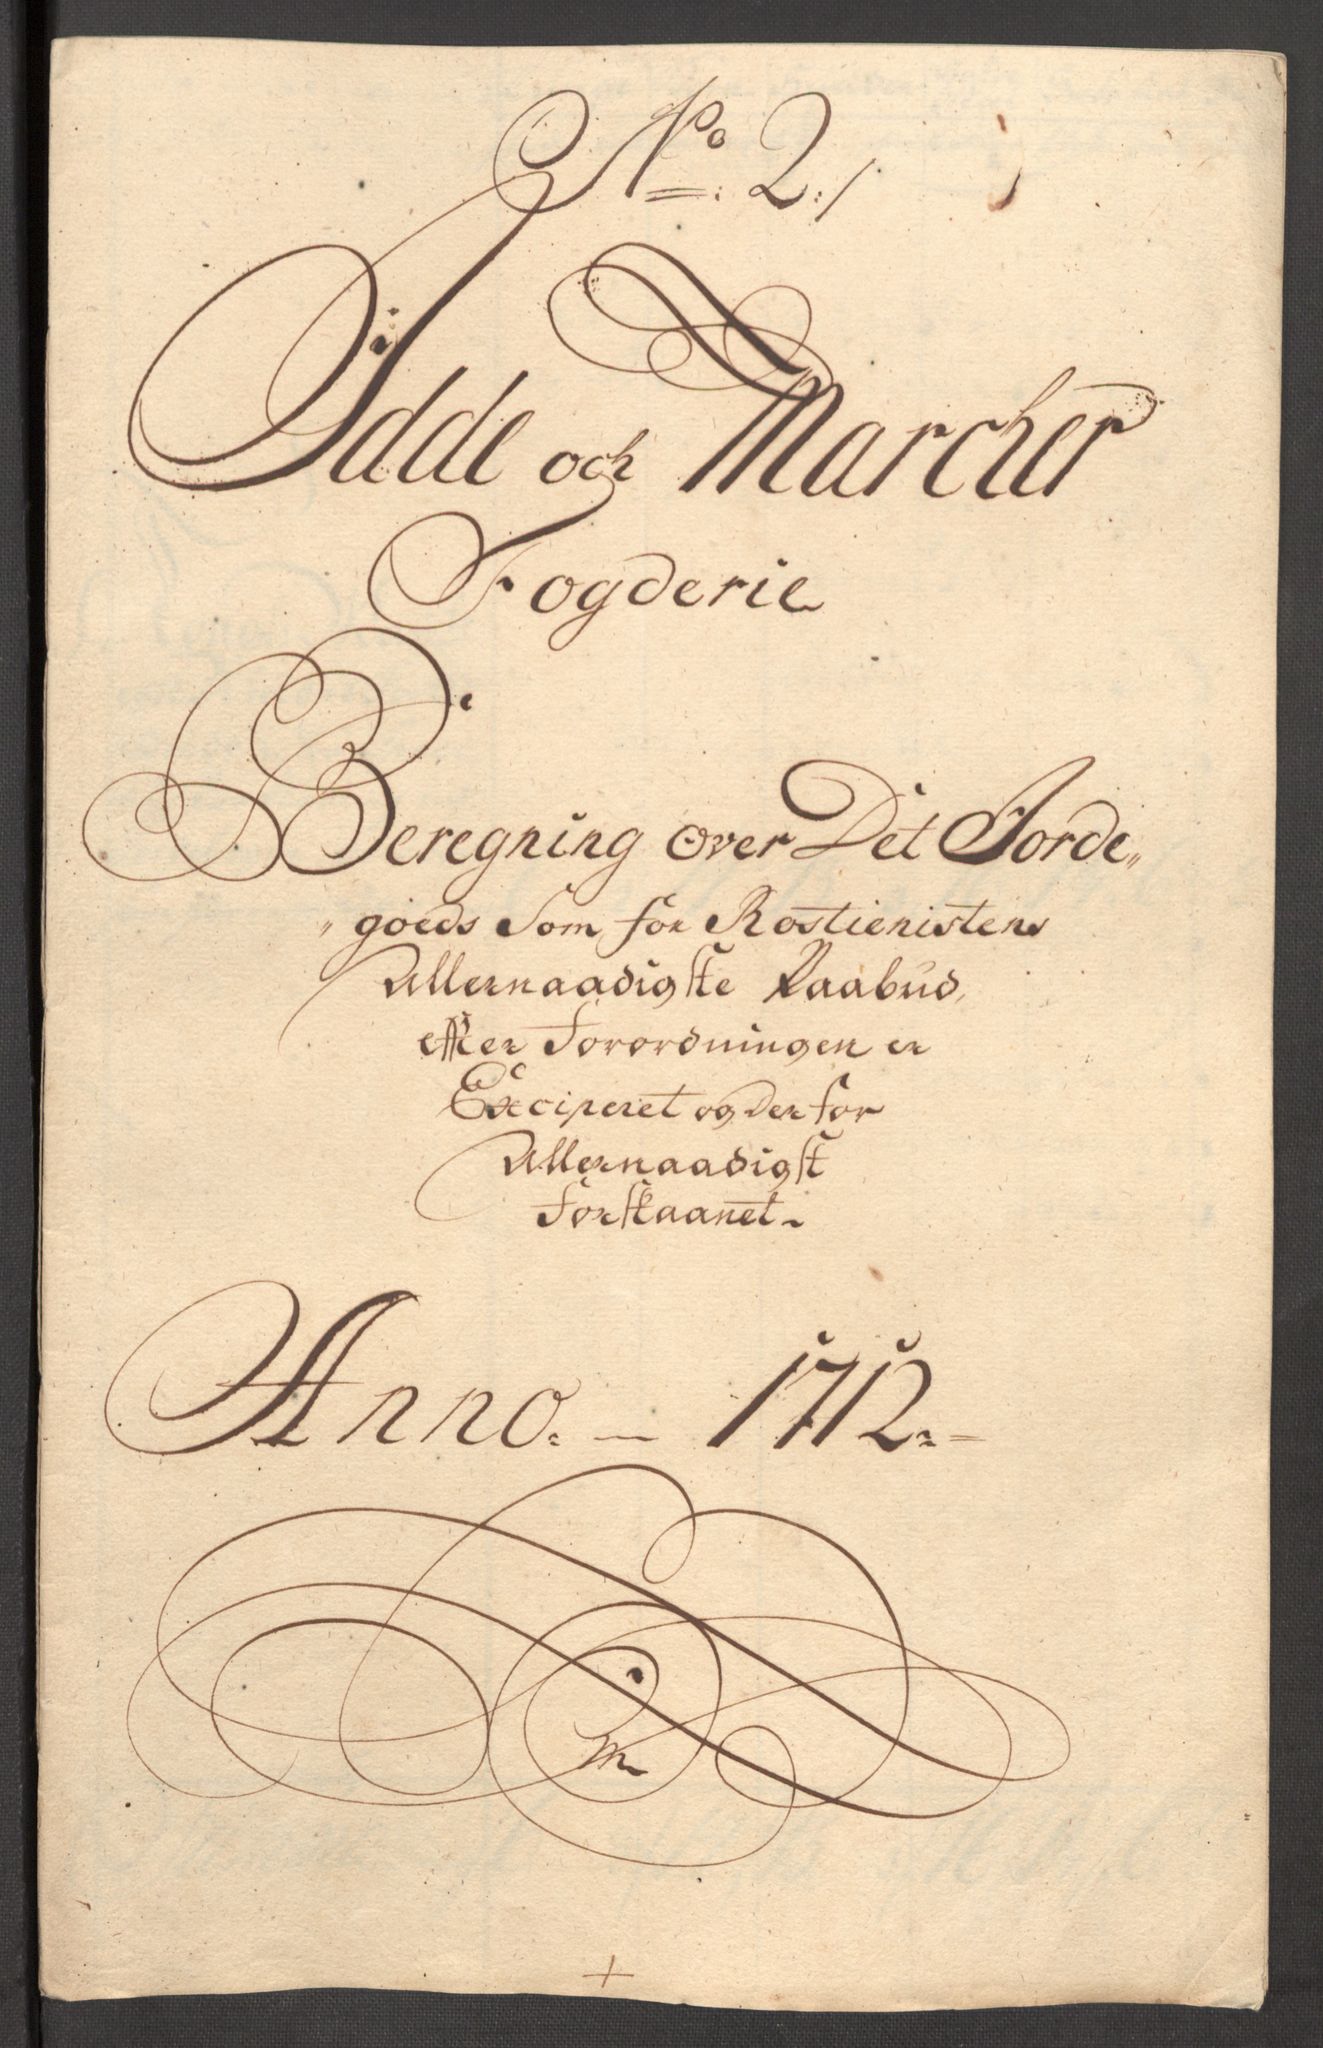 No: 2:/
Idde och Marcher
Fogderie
Beregning over Det Jorde„
„goeds Som for Rostienistens
Allernaadigste Paabud,
effter Forordningen er
Exciperet og der for
Allernaadigst
Forskaanet~
Anno. — 1712.